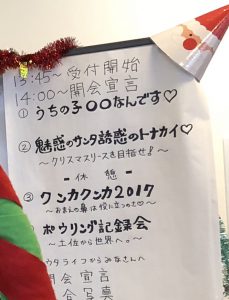 13:45~受付開始
14:00~開会宣言
① うちの子〇〇なんです♡
② 魅惑のサンタ誘惑のトナカイ♡
~クリスマスリースを目指せ!~
- 休憩 -
③ クンカクンカ2017
~おまえの鼻は役に立つのか♡~
④ ボウリング記録会
~土佐から世界へ。~
ウタライフからみなさんへ
閉会宣言
合写真